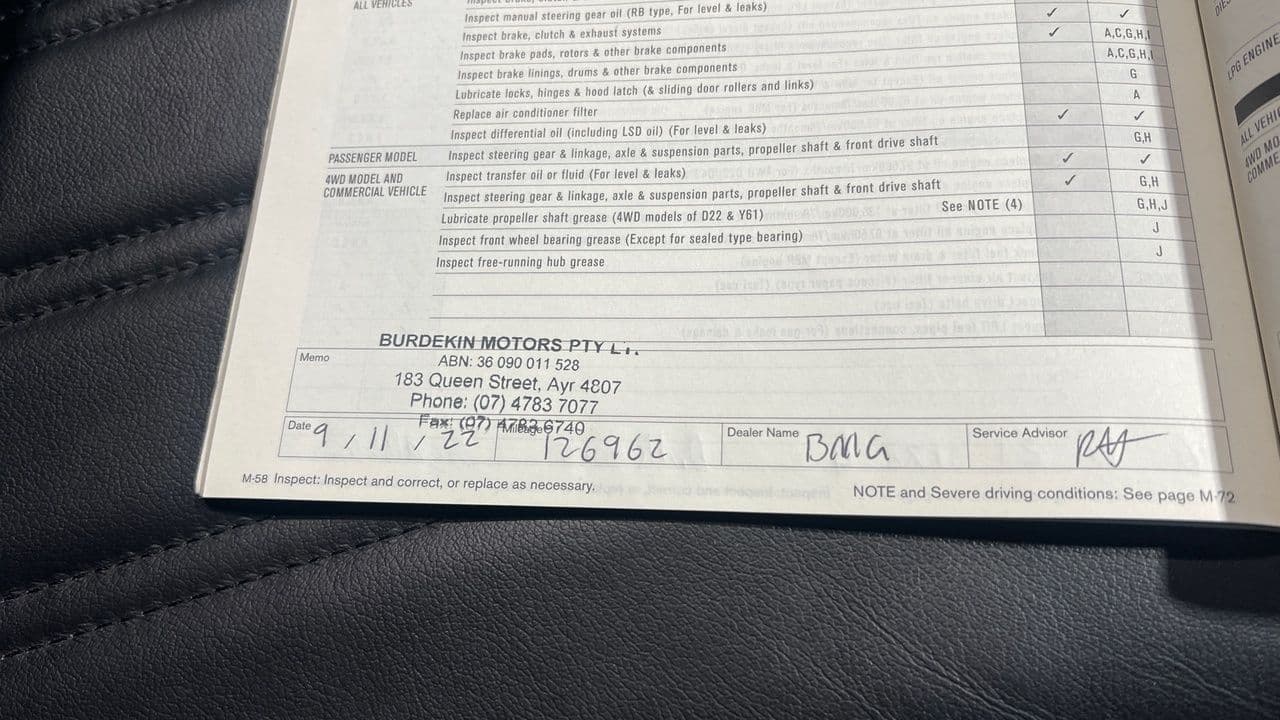 ALL VEHICLES
Inspect manual steering gear oil (RB type, For level & leaks) ✓ ✓
Inspect brake, clutch & exhaust systems ✓ A,C,G,H,I
Inspect brake pads, rotors & other brake components A,C,G,H,I
Inspect brake linings, drums & other brake components G
Lubricate locks, hinges & hood latch (& sliding door rollers and links) A
Replace air conditioner filter ✓ ✓
Inspect differential oil (including LSD oil) (For level & leaks) G,H
PASSENGER MODEL Inspect steering gear & linkage, axle & suspension parts, propeller shaft & front drive shaft ✓ ✓
4WD MODEL AND COMMERCIAL VEHICLE Inspect transfer oil or fluid (For level & leaks) ✓ G,H
Inspect steering gear & linkage, axle & suspension parts, propeller shaft & front drive shaft G,H,J
Lubricate propeller shaft grease (4WD models of D22 & Y61) See NOTE (4)
Inspect front wheel bearing grease (Except for sealed type bearing) J
Inspect free-running hub grease J
LPG ENGINE
ALL VEHI
4WD MO
COMME
BURDEKIN MOTORS PTY
Memo
ABN: 36 090 011 528
183 Queen Street, Ayr 4807
Phone: (07) 4783 7077
Fax: (07) 4783 6740
Date 9 / 11 / 22 Mileage 126962 Dealer Name BMG Service Advisor
M-58 Inspect: Inspect and correct, or replace as necessary.
NOTE and Severe driving conditions: See page M-72